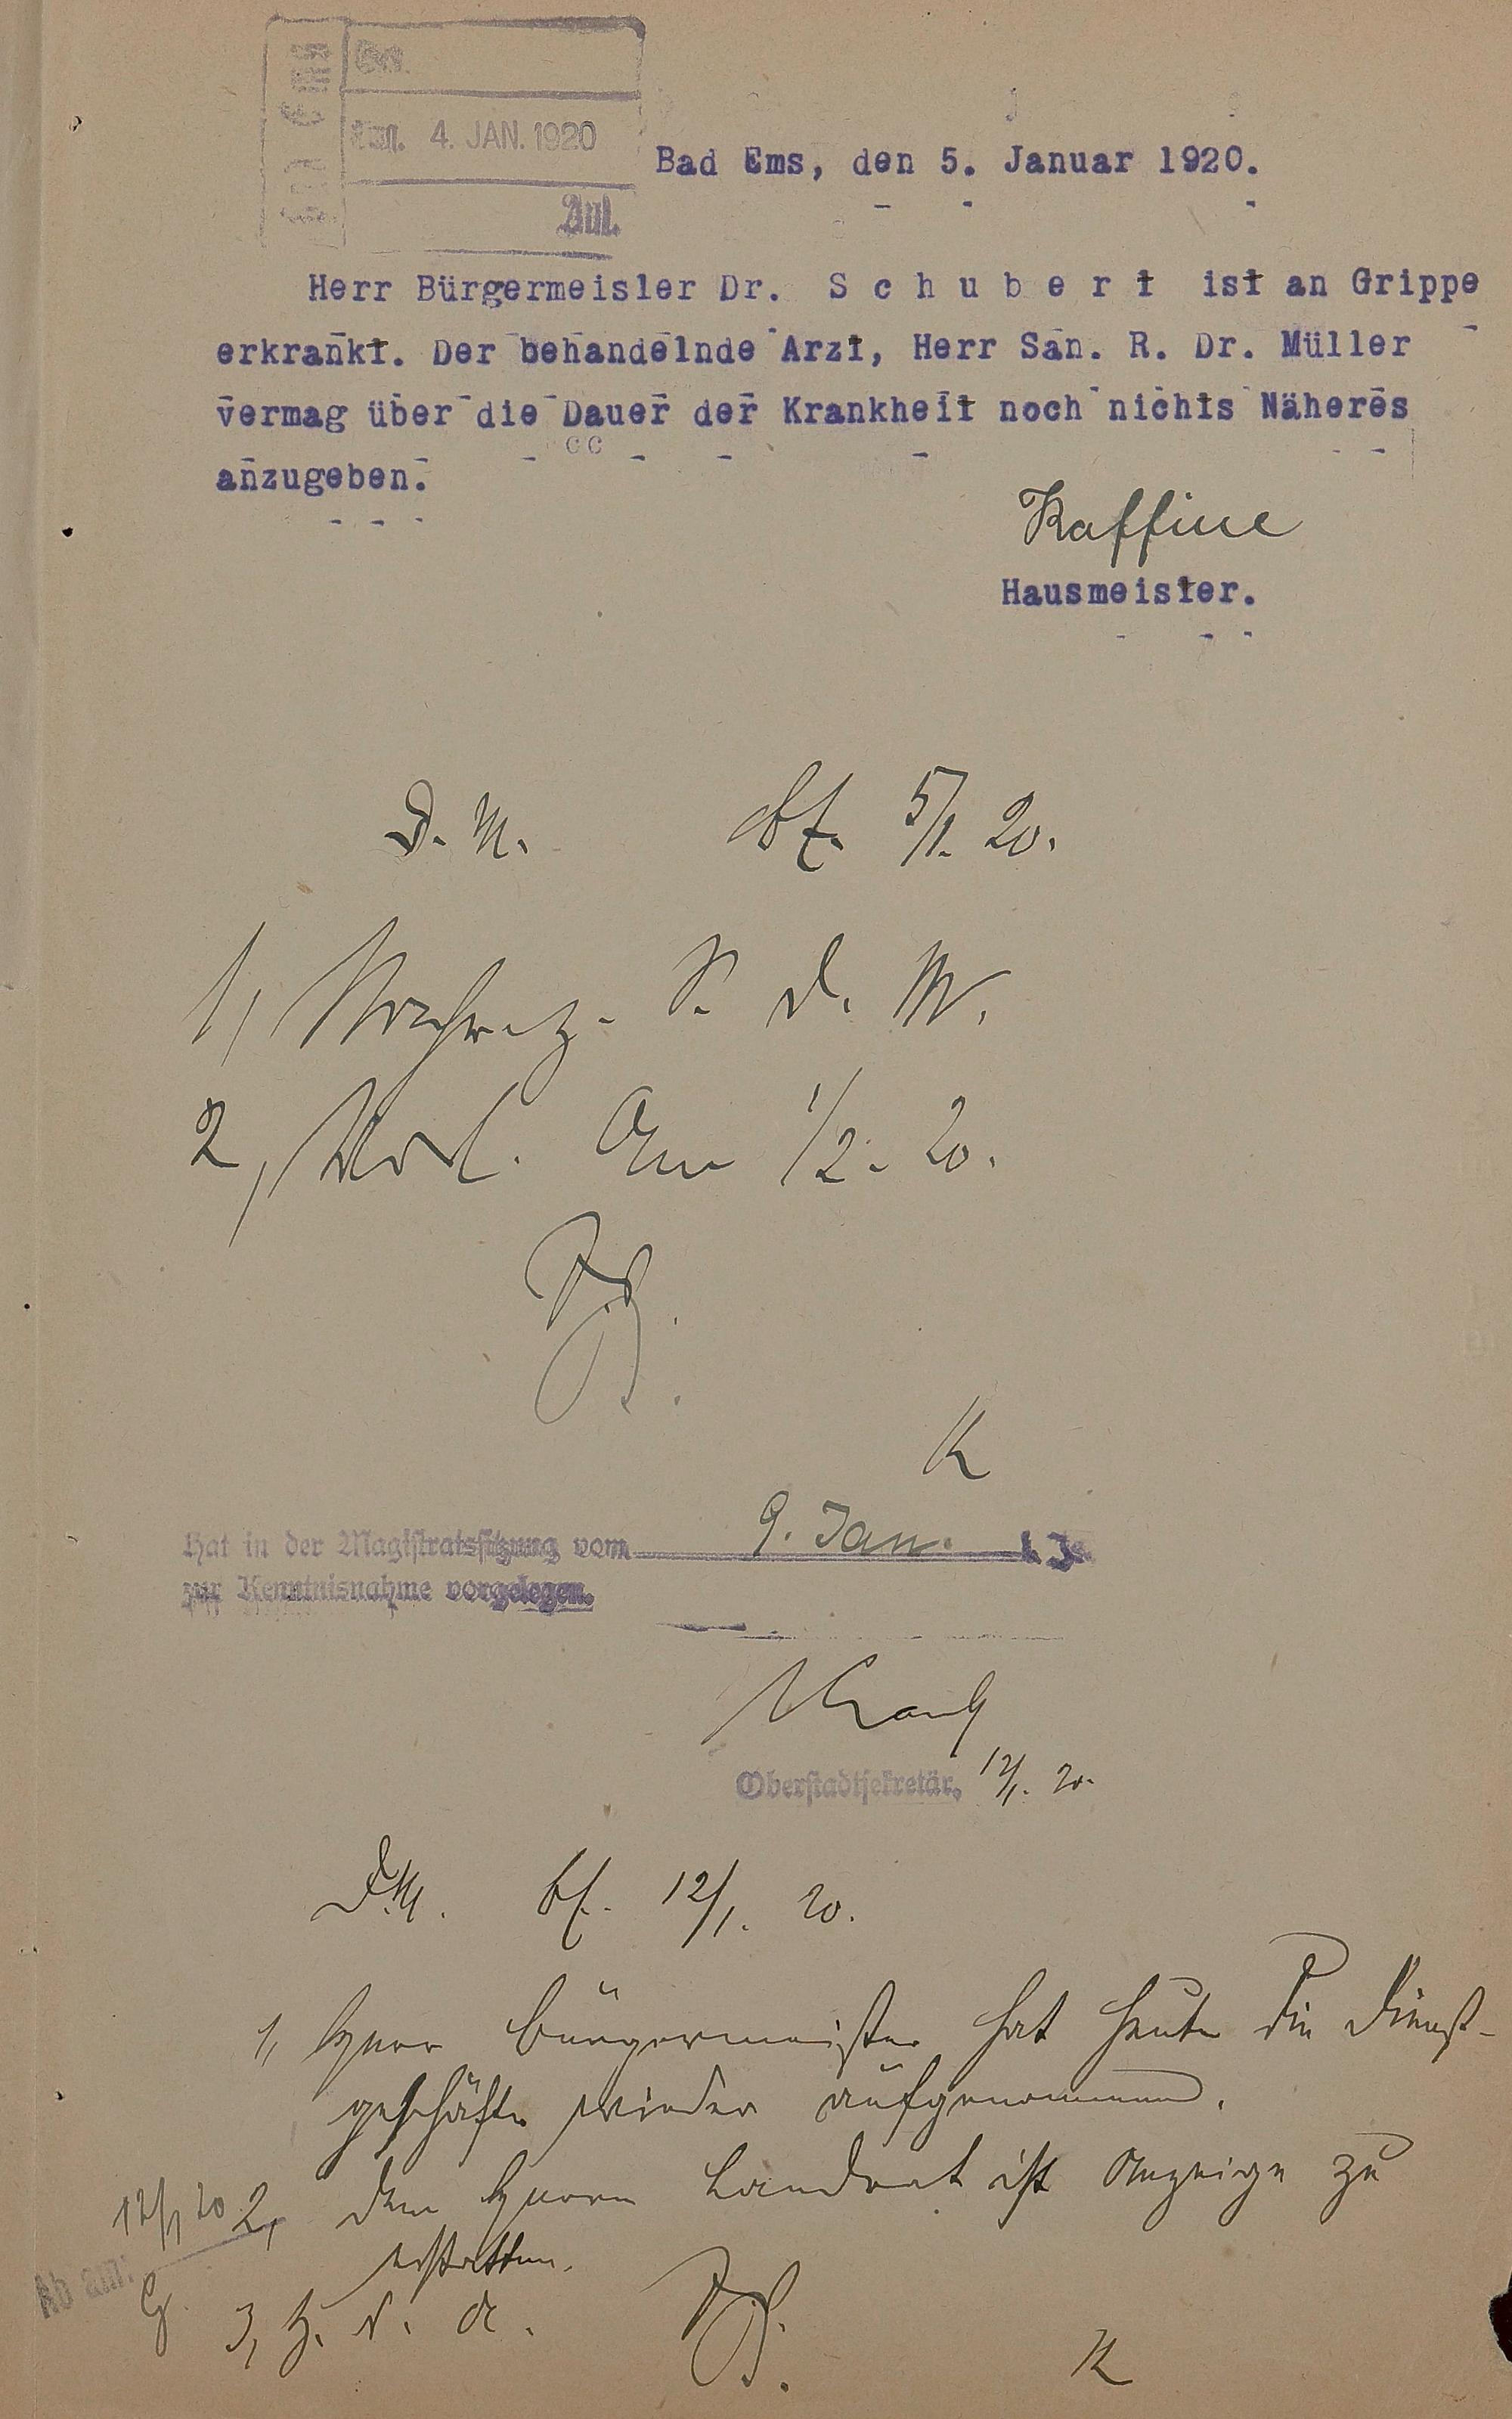 Bad Ems
4. JAN. 1920
Anl.
Bad Ems, den 5. Januar 1920.
Herr Bürgermeister Dr. Schubert ist an Grippe
erkrankt. Der behandelnde Arzt, Herr San. R. Dr. Müller
vermag über die Dauer der Krankheit noch nichts Näheres
anzugeben.
Kaffine
Hausmeister.
D. M. 5/1. 20.
1, d. M.
2, Am 1/2. 20.
K
Hat in der Magistratssitzung vom 9. Jan. d. Js.
zur Kenntnisnahme vorgelegen.
Oberstadtsekretär. 12/1. 20.
D. M. 12/1. 20.
1, Herr Bürgermeister hat heute die Dienst-
geschäfte wieder aufgenommen.
2, Dem Herrn Landrat ist Anzeige zu
erstatten.
Ab am: 12/1 20
3, Z. d. A.
K